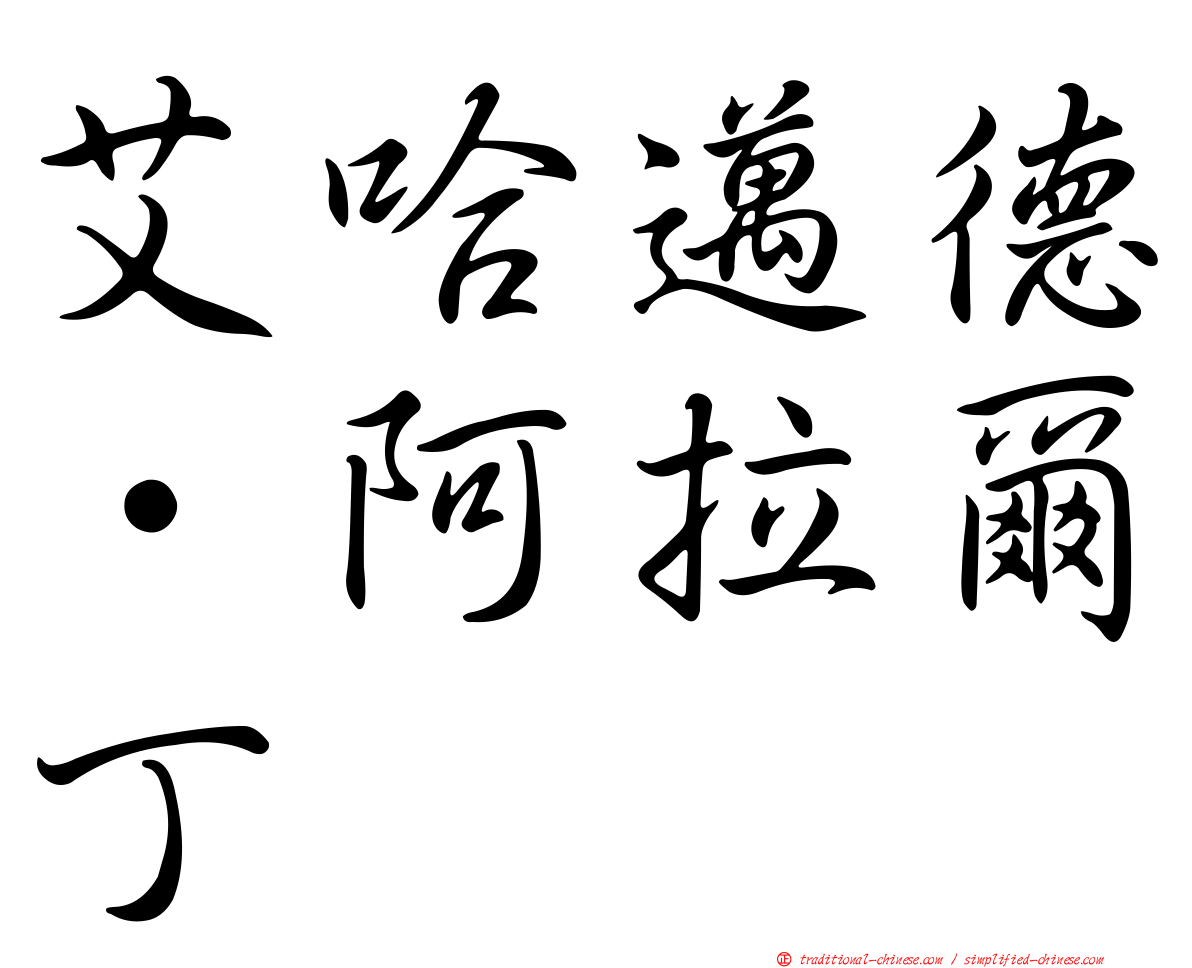 艾哈邁德
·阿拉爾
丁
㊣ traditional-chinese.com / simplified-chinese.com